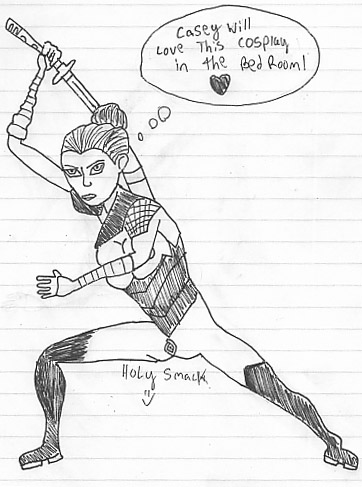 Casey Will
Love This Cosplay
in the BedRoom!
Holy Smack